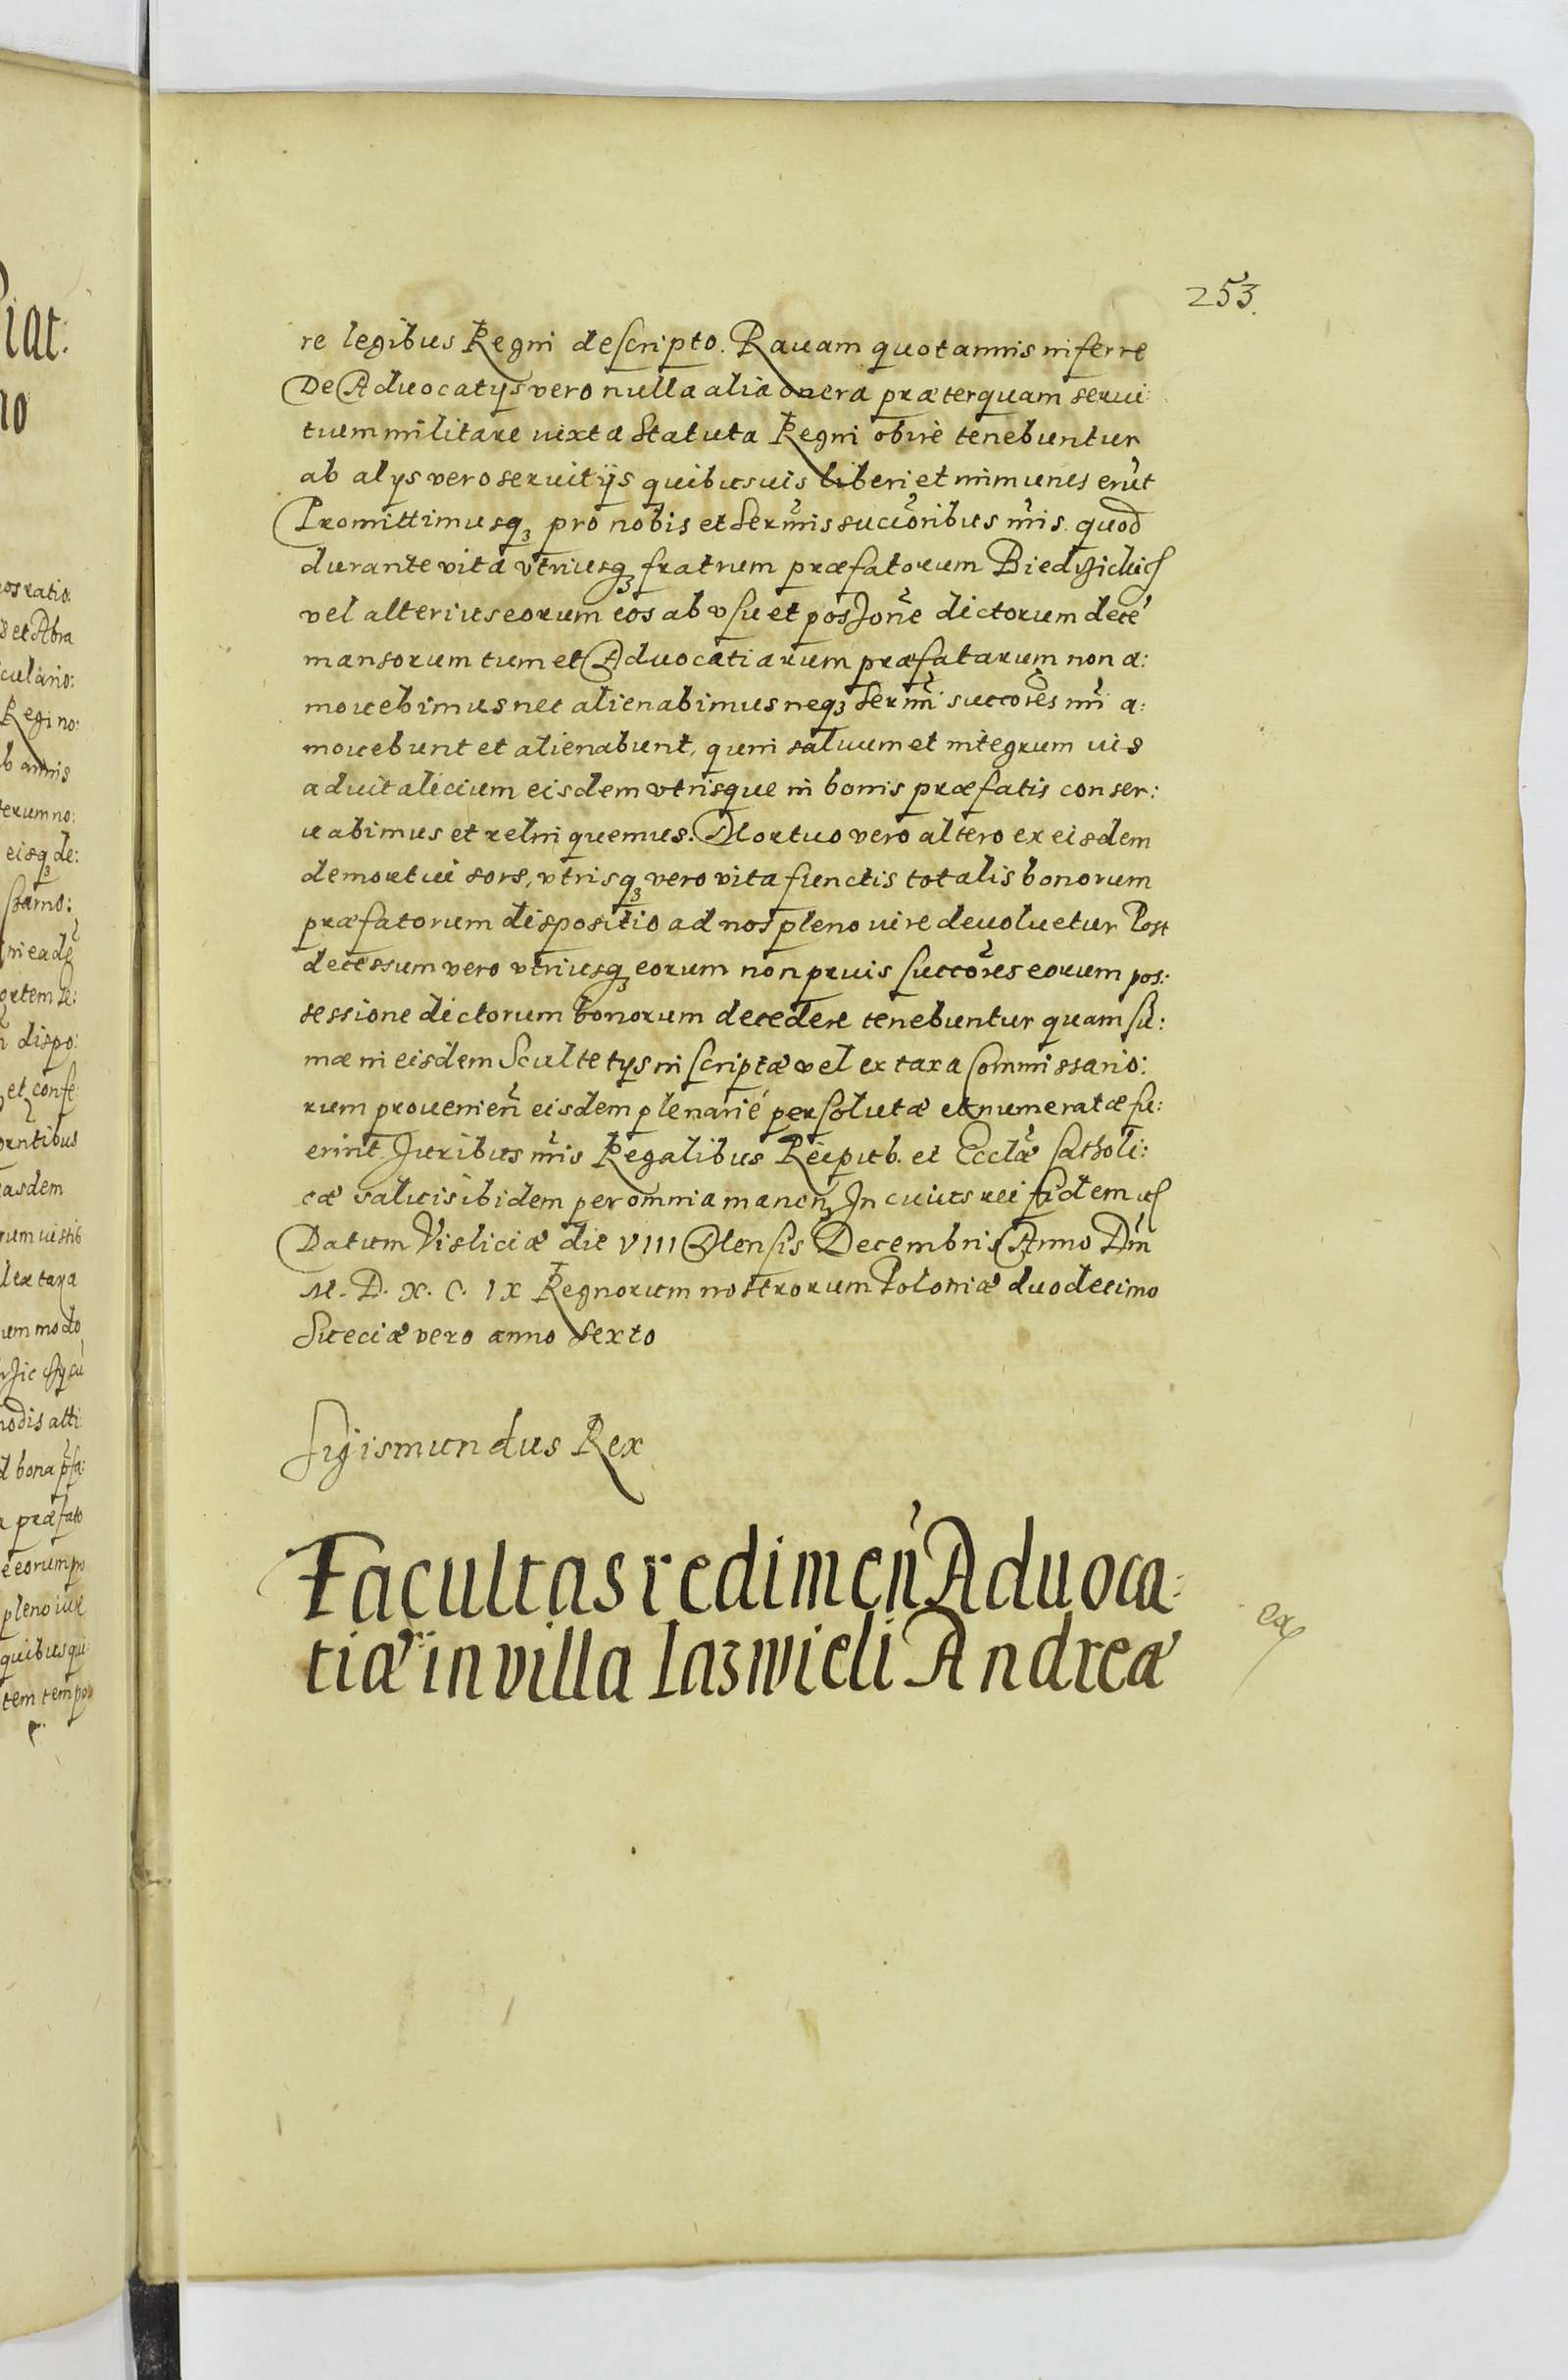 253.
re legibus Regni descripto. Rauam quotannis inferre
De Aduocatijs vero nulla alia onera præterquam serui:
tium militare iuxta Statuta Regni obire tenebuntur
ab alijs vero seruitijs quibusuis liberi et immunes erūt
Promittimusq3 pro nobis et Ser̃mis succ̃oribus ñris. quod
durante vita vtriusq3 fratrum præfatorum
vel alterius eorum eos ab vsu et possion̄e dictorum decē
mansorum tum et Aduocatiarum præfatarum non a:
mouebimus nec alienabimus neq3 Ser̃mi succōres ñri a:
mouebunt et alienabunt, quin saluum et integrum ius
aduitalicium eisdem vtrisque in bonis præfatis conser:
uabimus et relinquemus. Mortuo vero altero ex eisdem
demortui sors, vtrisq3 vero vita functis totalis bonorum
præfatorum dispositio ad nos pleno iure deuoluetur Post
decessum vero vtriusq3 eorum non prius succōres eorum pos:
sessione dictorum bonorum decedere tenebuntur quam sū:
mæ in eisdem Scultetijs inscriptæ vel ex taxa Commissario:
rum prouenien̄ eisdem plenarié persolutæ et numeratæ fu:
erint. Juribus ñris Regalibus Reipub. et Eccl̃æ Catholi:
cæ saluis ibidem per omnia manen̄. In cuius rei fidem
Datum Visliciæ die VIII Mensis Decembris Anno Dñi
M. D. X. C. IX Regnorum nostrorum Poloniæ duodecimo
Sueciæ vero anno sexto
Sigismundus Rex
Facultas redimen̄ Aduoca:
tiæ in villa Iazwieli Andreæ